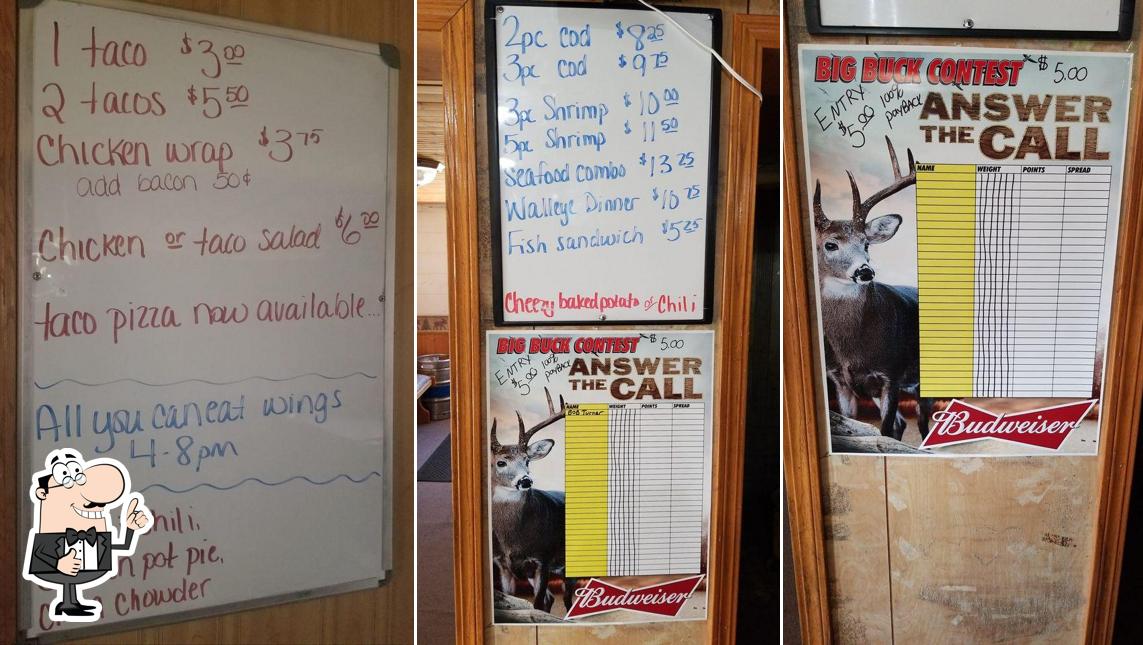 1 taco $3.00
2 tacos $5.50
Chicken wrap $3.75
add bacon 50¢
Chicken or taco salad $6.00
taco pizza now available...
All you can eat wings
4-8pm
Chili,
pot pie,
Chowder
2pc cod $8.25
3pc cod $9.75
3pc Shrimp $10.00
5pc Shrimp $11.50
seafood combo $13.25
Walleye Dinner $10.75
Fish sandwich $5.25
Cheezy baked potato or Chili
BIG BUCK CONTEST $5.00
ENTRY
$5.00 100%
payBack
ANSWER
THE CALL
NAME WEIGHT POINTS SPREAD
BoB Turner
Budweiser
BIG BUCK CONTEST $5.00
ENTRY
$5.00 100%
payBack
ANSWER
THE CALL
NAME WEIGHT POINTS SPREAD
Budweiser